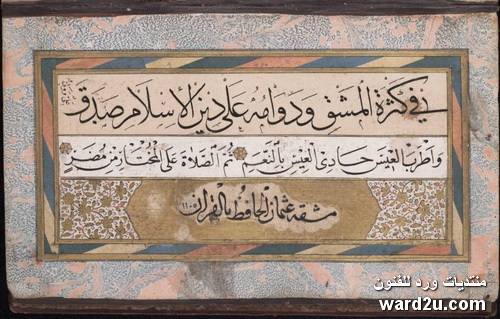 في كثرة المشق ودوامه على دين الاسلام صدق
واطرب العيس حادى العيس بالنغم ثم الصلاة على المختار من مضر
مشقه عثمان الحافظ بالقرآن
منتديات ورد للفنون
ward2u.com